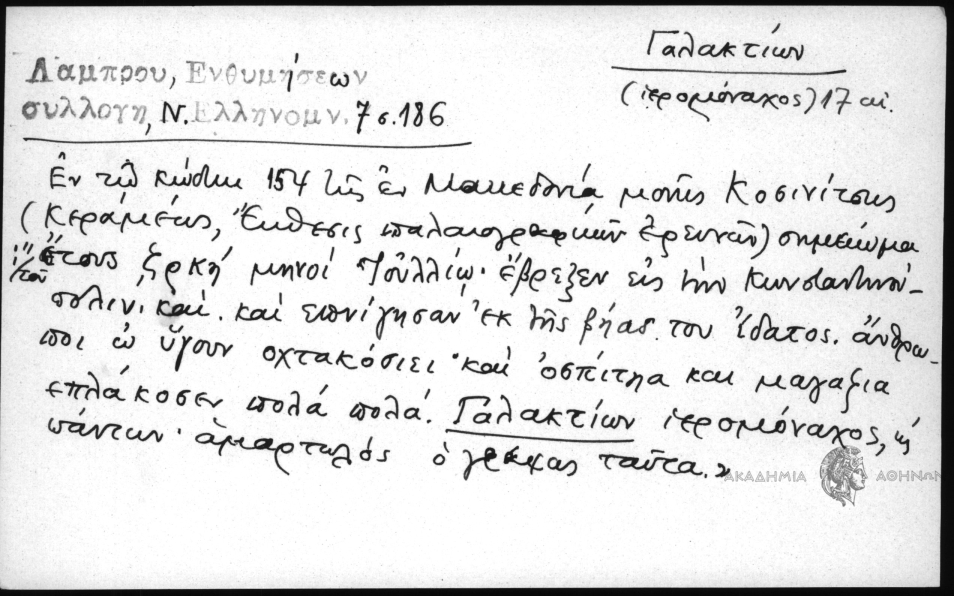 Γαλακτίων
(ἱερομόναχος) 17 αἰ.
Λαμπρου, Ενθυμήσεων
συλλογη, Ν. Ελληνομν. 7 σ. 186
Ἐν τῷ κώδικι 154 τῆς ἐν Μακεδονίᾳ μονῆς Κοσινίτσης
(Κεραμέως, Ἔκθεσις παλαιογραφικῶν ἐρευνῶν) σημείωμα
"τοῦ ἔτους ζρκή μηνοί Ἰουλλίῳ· ἔβρεξεν εἰς τὴν Κωνσταντινού-
πολιν. καὶ. καὶ επνίγησαν ἐκ τῆς βήας του ἵδατος. ἄνθρω-
ποι ὠ ὕγουν οχτακόσιει· καὶ ὀσπίτηα και μαγαζια
επλάκοσεν πολά πολά. Γαλακτίων ἱερομόναχος, κὶ
πάντων· ἁμαρτωλός ὁ γράψας ταῦτα.»
ΑΚΑΔΗΜΙΑ ΑΘΗΝΩΝ